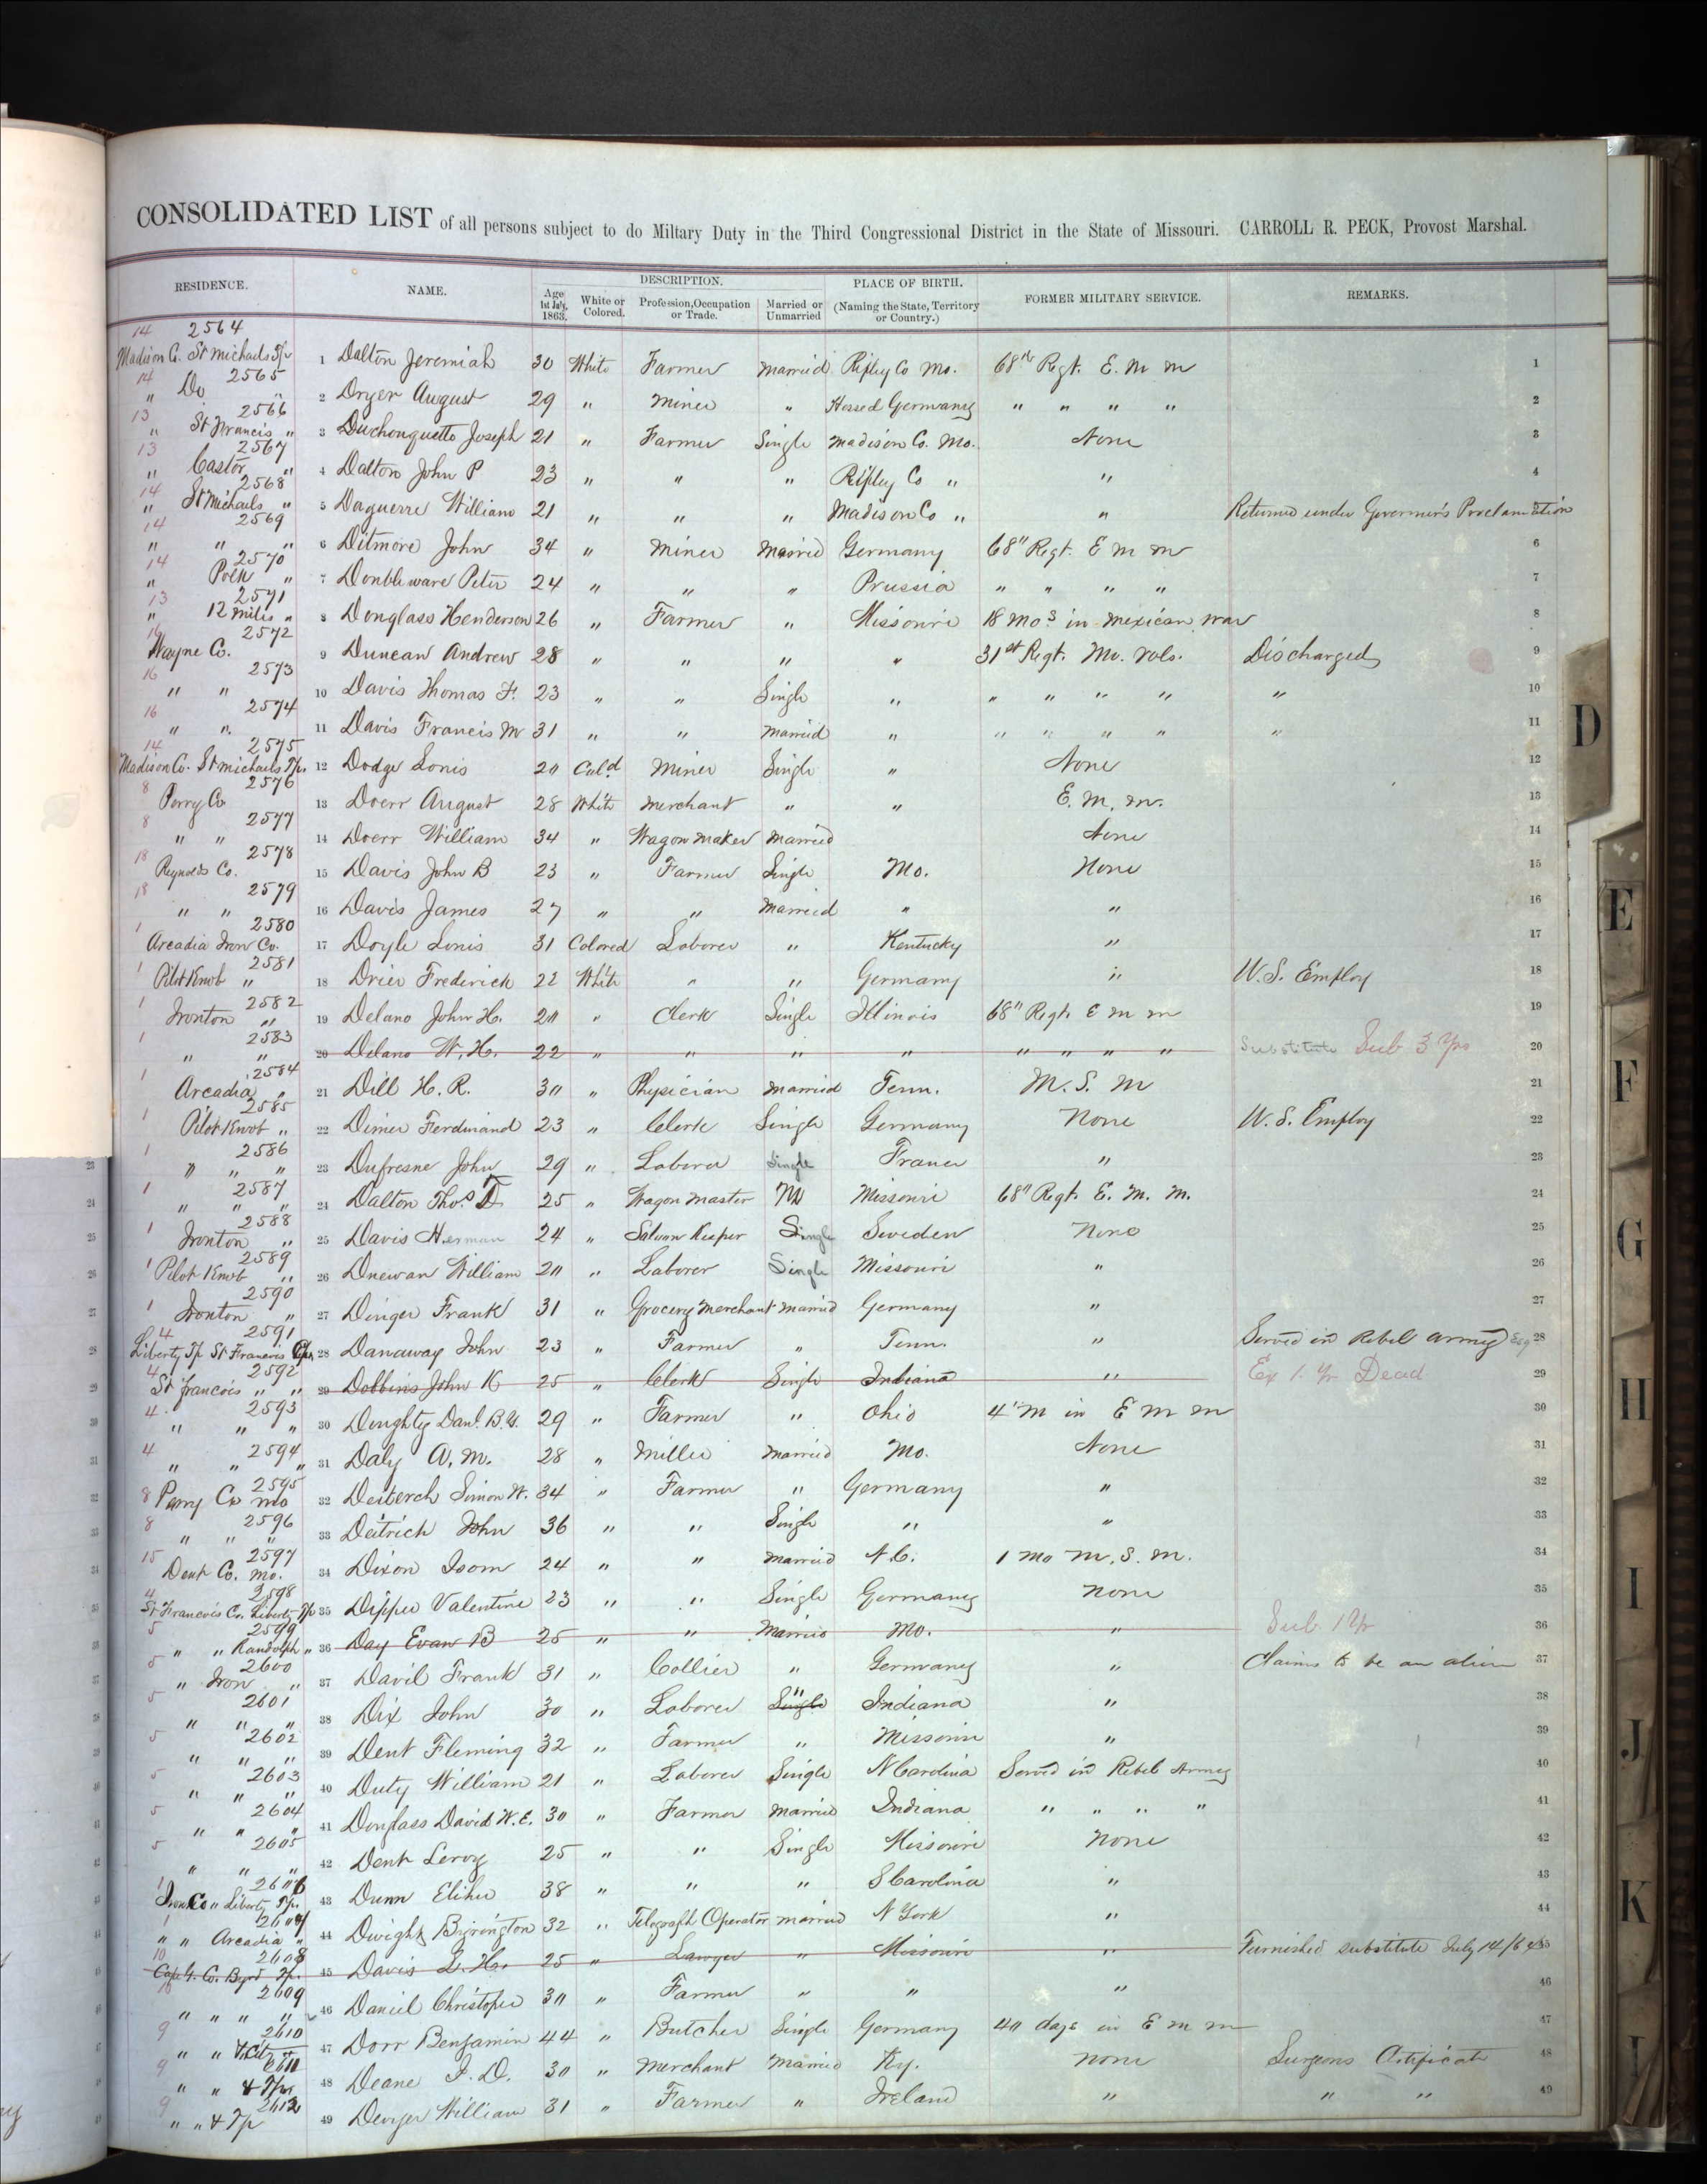 CONSOLIDATED LIST of all persons subject to do Miltary Duty in the Third Congressional District in the State of Missouri. CARROLL R. PECK, Provost Marshal.
RESIDENCE. NAME. DESCRIPTION. PLACE OF BIRTH. FORMER MILITARY SERVICE. REMARKS.
Age 1st July, 1863. White or Colored. Profession, Occupation or Trade. Married or Unmarried (Naming the State, Territory or Country.)
14 2564
Madison Co. St Michaels Tp 1 Dalton Jeremiah 30 White Farmer Married Ripley Co Mo. 68th Regt. E. M M 1
14 2565
" Do " 2 Dryer August 29 " Miner " Germany " " " " 2
13 2566
" St Francis " 3 Duchouquette Joseph 21 " Farmer Single Madison Co. Mo. None 3
13 2567
" Castor " 4 Dalton John P 23 " " " Ripley Co " " 4
14 2568
" St Michaels " 5 Daguerre William 21 " " " Madison Co " " Returned under Governor's Proclamation 5
14 2569
" " " 6 Ditmore John 34 " Miner Married Germany 68" Regt. E M M 6
14 2570
" Polk " 7 Doubleware Peter 24 " " " Prussia " " " " 7
13 2571
" 12 Miles " 8 Douglass Henderson 26 " Farmer " Missouri 18 Mos in Mexican war 8
16 2572
Wayne Co. 9 Duncan Andrew 28 " " " " 31st Regt. Mo. Vols. Discharged 9
16 2573
" " 10 Davis Thomas F. 23 " " Single " " " " " " 10
16 2574
" " 11 Davis Francis M 31 " " Married " " " " " " 11
14 2575
Madison Co. St Michaels Tp. 12 Dodge Louis 20 Cold Miner Single " None 12
8 2576
Perry Co 13 Doerr August 28 White Merchant " " E. M. M. 13
8 2577
" " 14 Doerr William 34 " Wagon Maker Married None 14
18 2578
Reynolds Co. 15 Davis John B 23 " Farmer Single Mo. None 15
18 2579
" " 16 Davis James 27 " " Married " " 16
1 2580
Arcadia Iron Co. 17 Doyle Louis 31 Colored Laborer " Kentucky " 17
1 2581
Pilot Knob " 18 Drier Frederick 22 White " " Germany " U.S. Employ 18
1 2582
Ironton " 19 Delano John H. 20 " Clerk Single Illinois 68" Regt E M M 19
1 2583
" " 20 Delano W. H. 22 " " " " " " " " Substitute Sub 3 Yrs 20
1 2584
Arcadia " 21 Dill H. R. 30 " Physician Married Tenn. M. S. M 21
1 2585
Pilot Knob " 22 Dimer Ferdinand 23 " Clerk Single Germany None U. S. Employ 22
1 2586
" " " 23 Dufresne John 29 " Laborer Single France " 23
1 2587
" " " 24 Dalton Thos. D 25 " Wagon Master M Missouri 68" Regt E. M. M. 24
1 2588
Ironton " 25 Davis Herman 24 " Saloon Keeper Single Sweden None 25
1 2589
Pilot Knob " 26 Dnewan William 20 " Laborer Single Missouri " 26
1 2590
Ironton " 27 Dinger Frank 31 " Grocery Merchant Married Germany " 27
4 2591
Liberty Tp St Francois Co 28 Danaway John 23 " Farmer " Tenn. " Served in Rebel army 28
4 2592
St Francois " " 29 Dobbins John K 25 " Clerk Single Indiana " Ex 1. Yr Dead 29
4. 2593
" " " 30 Doughty Danl. B.G. 29 " Farmer " Ohio 4 M in E M M 30
4 2594
" " " 31 Daly A. M. 28 " Miller Married Mo. None 31
2595
8 Perry Co Mo 32 Deiberch Simon W. 34 " Farmer " Germany " 32
8 2596
" " " 33 Deitrich John 36 " " Single " " 33
15 2597
Dent Co. Mo. 34 Dixon Isom 24 " " Married N.C. 1 Mo M. S. M. 34
4 2598
St Francois Co. Liberty Tp 35 Dippee Valentine 23 " " Single Germany None 35
5 2599
" " Randolph " 36 Day Evan B 25 " " Married Mo. " Sub 1 Yr 36
5 2600
" Iron " 37 Davil Frank 31 " Collier " Germany " Claims to be an alien 37
5 2601
" " " 38 Dix John 30 " Laborer Single " Indiana " 38
5 2602
" " " 39 Dent Fleming 32 " Farmer " Missouri " 39
5 2603
" " " 40 Duty William 21 " Laborer Single N Carolina Served in Rebel Army 40
5 2604
" " " 41 Douglass David W. E. 30 " Farmer Married Indiana " " " " 41
5 2605
" " " 42 Dent Leroy 25 " " Single Missouri None 42
1 2606
Iron Co " Liberty Tp. 43 Dunn Elihu 38 " " " S Carolina " 43
1 2607
" " Arcadia " 44 Dwight Byrington 32 " Telegraph Operator Married N York " 44
10 2608
Cape G. Co. Byrd Tp. 45 Davis L. H. 25 " Lawyer " Missouri " Furnished substitute July 14/64 45
10 2609
" " " " 46 Daniel Christopher 30 " Farmer " " " 46
9 2610
" " 47 Dorr Benjamin 44 " Butcher Single Germany 40 days in E M M 47
9 2611
" " & Tp. 48 Deane I. D. 30 " Merchant Married Ky. None Surgeons Certificate 48
9 2612
" " & Tp 49 Denyer William 31 " Farmer " Ireland " " " 49
D
E
F
G
H
I
J
K